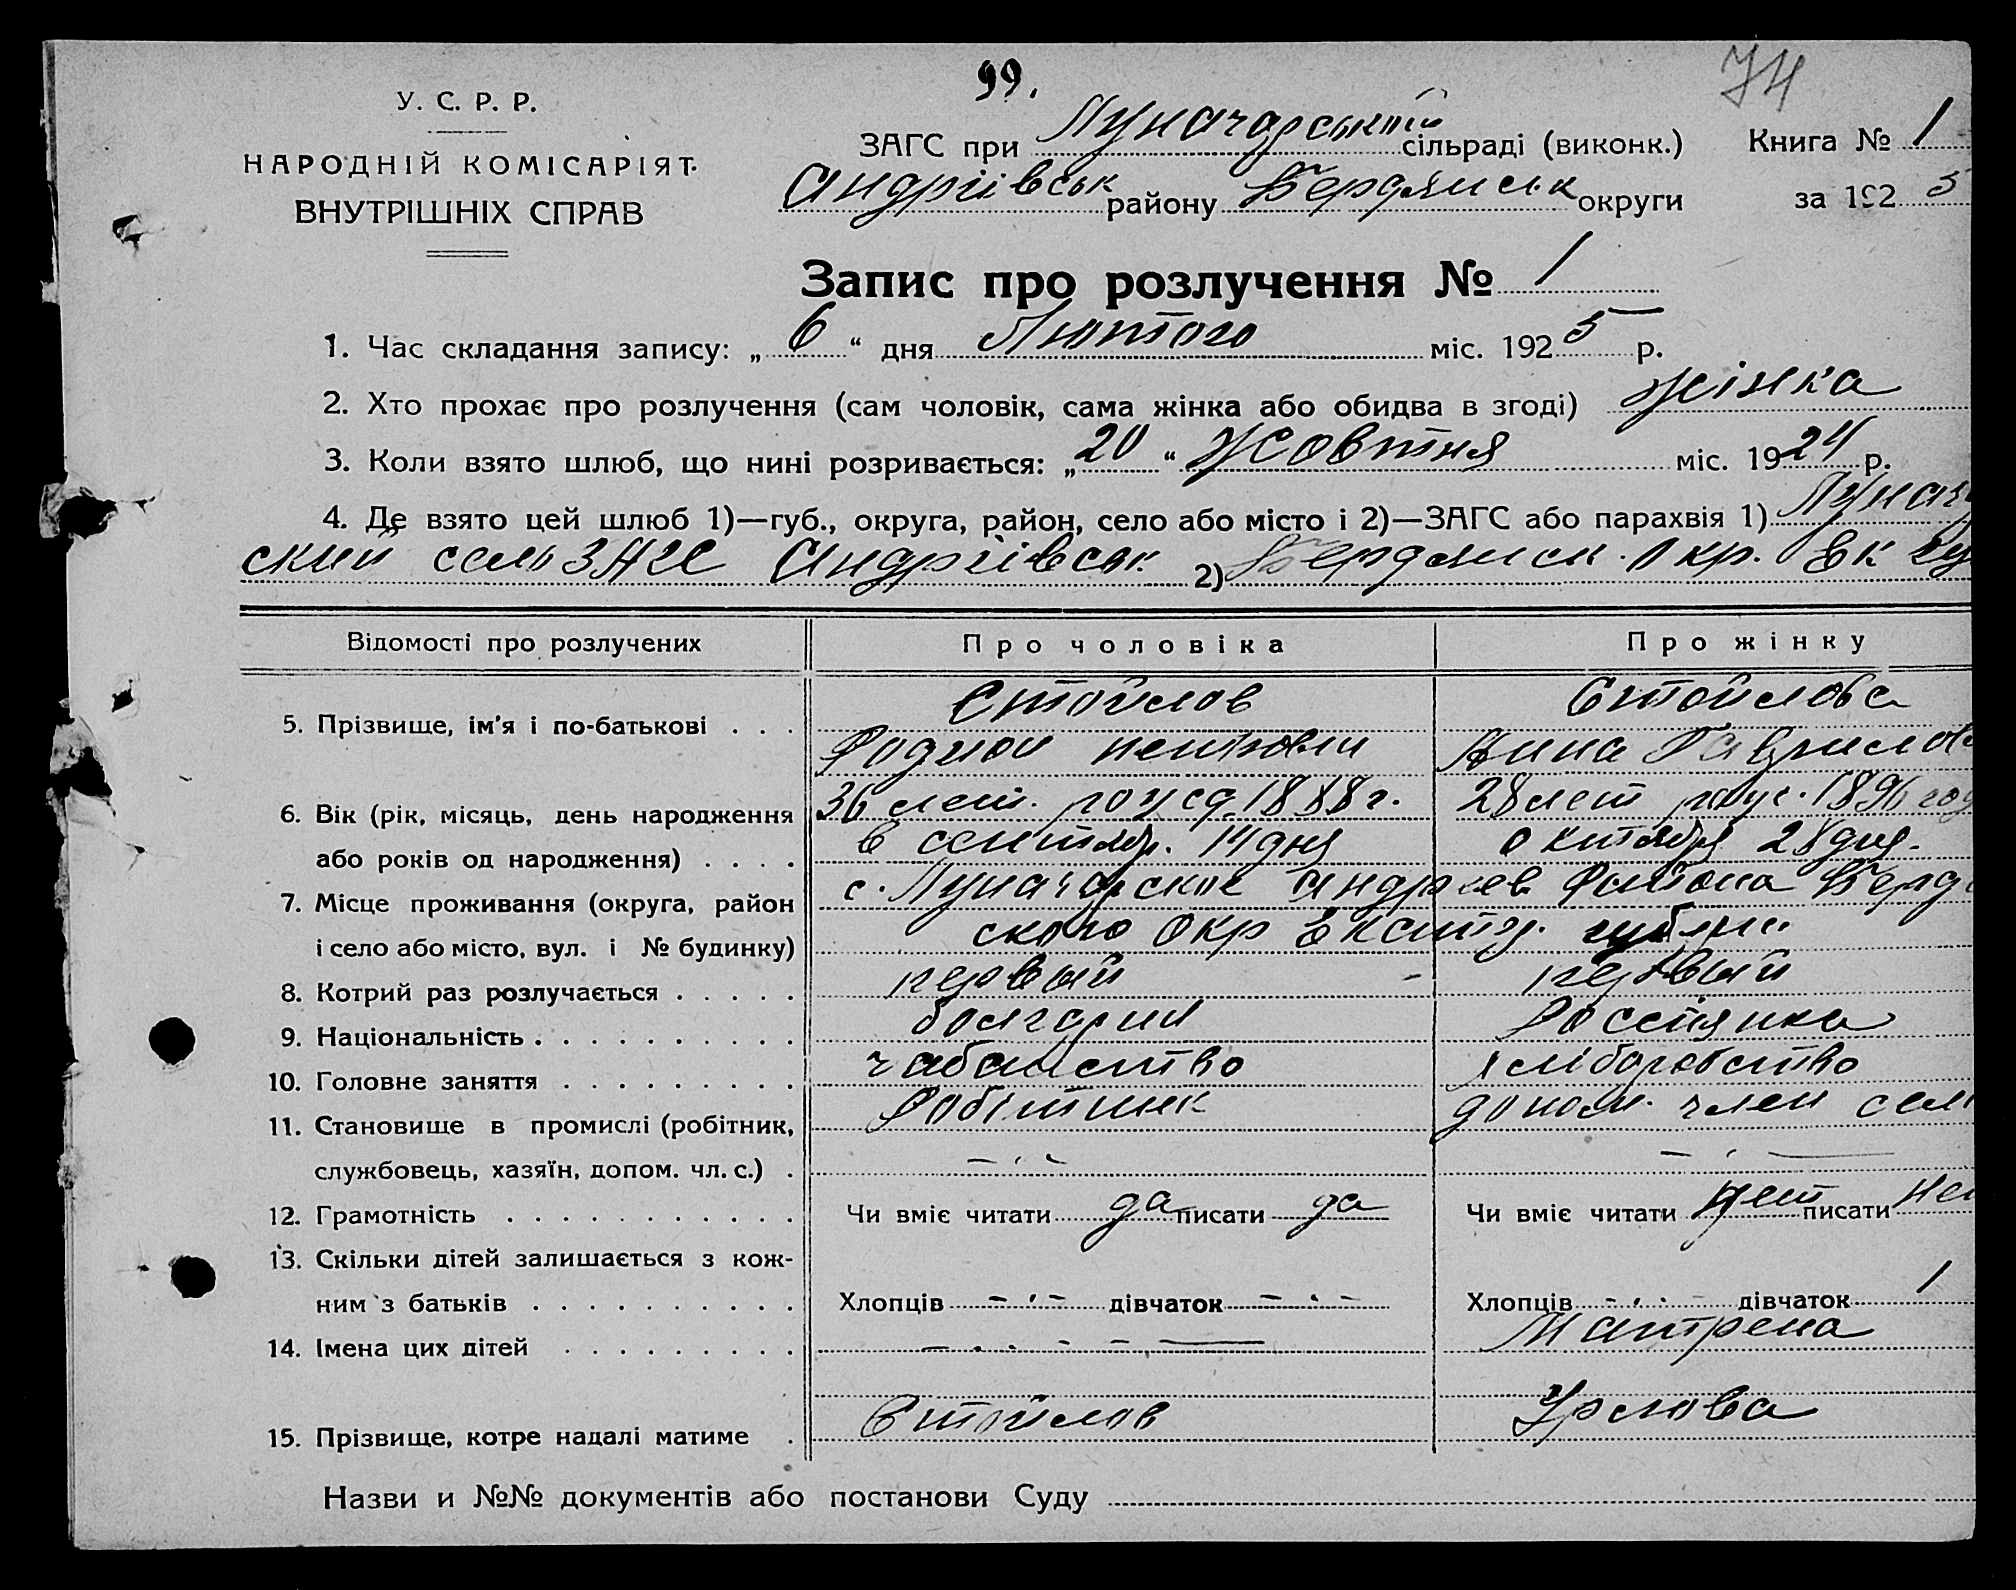 99.
74
У. С. Р. Р.
НАРОДНІЙ КОМІСАРІЯТ
ВНУТРІШНІХ СПРАВ
ЗАГС при Луначарський сільраді (виконк.) Книга № 1
Андріівськ району Бердянськ округи за 192 5
Запис про розлучення № 1
1. Час складання запису: „ 6 “ дня Лютого міс. 192 5 р.
2. Хто прохає про розлучення (сам чоловік, сама жінка або обидва в згоді) жінка
3. Коли взято шлюб, що нині розривається: „ 20 “ Жовтня міс. 19 24 р.
4. Де взято цей шлюб 1)—губ., округа, район, село або місто і 2)—ЗАГС або парахвія 1) Луначар
ский сель ЗАГС Андріівськ 2) Бердянск. Окр.
Відомості про розлучених Про чоловіка Про жінку
5. Прізвище, ім'я і по-батькові . . . Стойлов Стойлова
Родион Анна Гаврилов
6. Вік (рік, місяць, день народження 36 лет. рожд. 1888 г. 28 лет рож. 1896 год
або років од народження) . . . . в сентябр. 14 дня октября 28 дня.
7. Місце проживання (округа, район с. Луначарское Андреев района Бердя
і село або місто, вул. і № будинку) ского Окр Екатер. губерн.
8. Котрий раз розлучається . . . . . первый - первый
9. Національність . . . . . . . . . . болгарин Россіянка
10. Головне заняття . . . . . . . . . чабанство хліборобство
11. Становище в промислі (робітник, Робітник допом. член сем
службовець, хазяїн, допом. чл. с.) .
12. Грамотність . . . . . . . . . . . Чи вміє читати да писати да Чи вміє читати нет писати нет
13. Скільки дітей залишається з кож-
ним з батьків . . . . . . . . . . Хлопців - . - дівчаток - . - Хлопців - . . - дівчаток 1
14. Імена цих дітей . . . . . . . . . Матрена
15. Прізвище, котре надалі матиме . Стойлов Урлова
Назви и №№ документів або постанови Суду